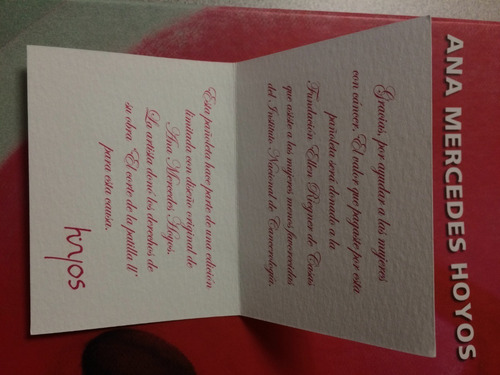 ANA MERCEDES HOYOS
Gracias, por ayudar a las mujeres
con cáncer. El valor que pagaste por esta
pañoleta será donado a la
Fundación Ellen Riegner de Casas
que asiste a las mujeres menos favorecidas
del Instituto Nacional de Cancerología.
Esta pañoleta hace parte de una edición
limitada con diseño original de
Ana Mercedes Hoyos.
La artista donó los derechos de
su obra "El corte de la patilla II"
para esta causa.
hoyos